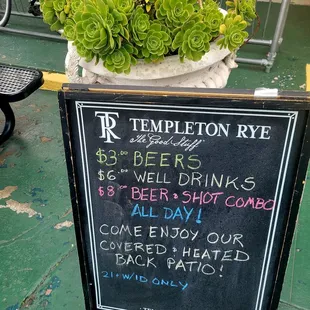 TR TEMPLETON RYE
"The Good Stuff"
$3.00 BEERS
$6.00 WELL DRINKS
$8.00 BEER + SHOT COMBO
ALL DAY!
COME ENJOY OUR
COVERED + HEATED
BACK PATIO!
21+ W/ID ONLY